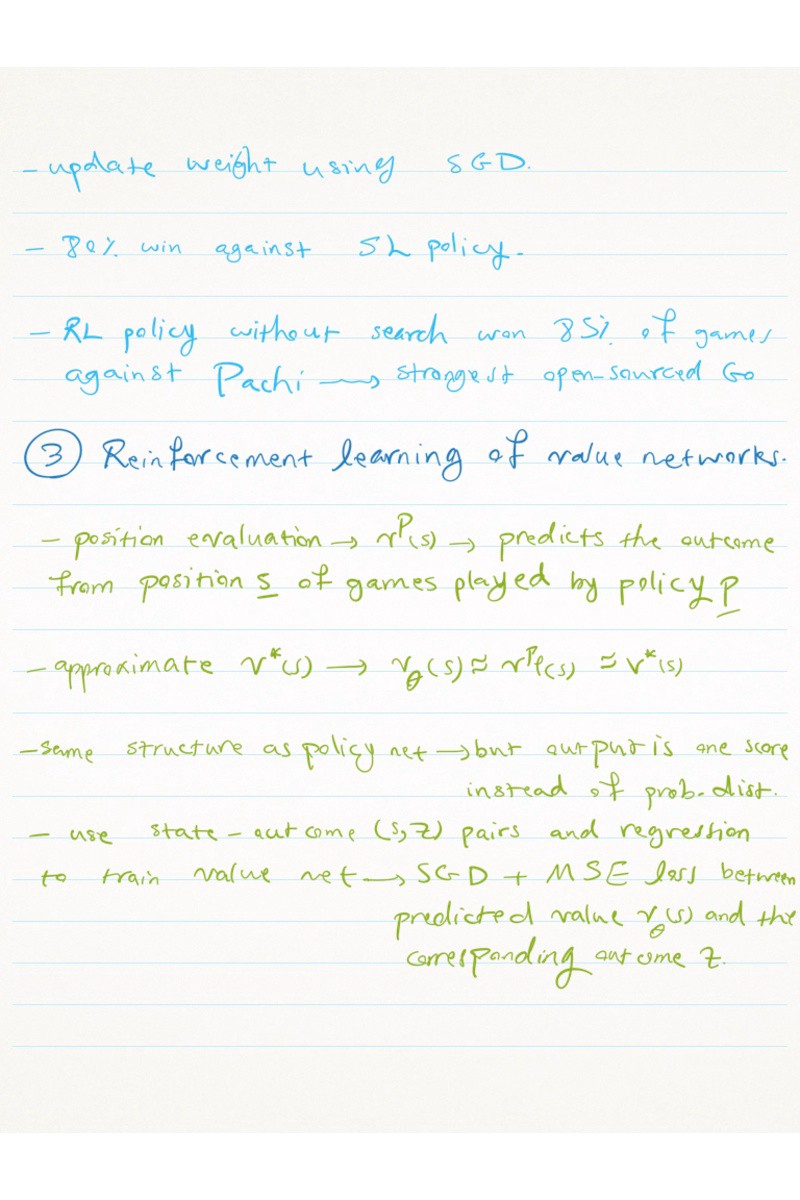 - update weight using SGD.
- 80% win against SL policy.
- RL policy without search won 85% of games
against Pachi → strongest open-sourced Go
③ Reinforcement learning of value networks.
- position evaluation → vᴾ(s) → predicts the outcome
from position s of games played by policy p
- approximate v*(s) → v_θ(s) ≈ v^Pρ(s) ≈ v*(s)
- same structure as policy net → but output is one score
instead of prob. dist.
- use state-outcome (s,z) pairs and regression
to train value net → SGD + MSE loss between
predicted value v_θ(s) and the
corresponding outcome z.